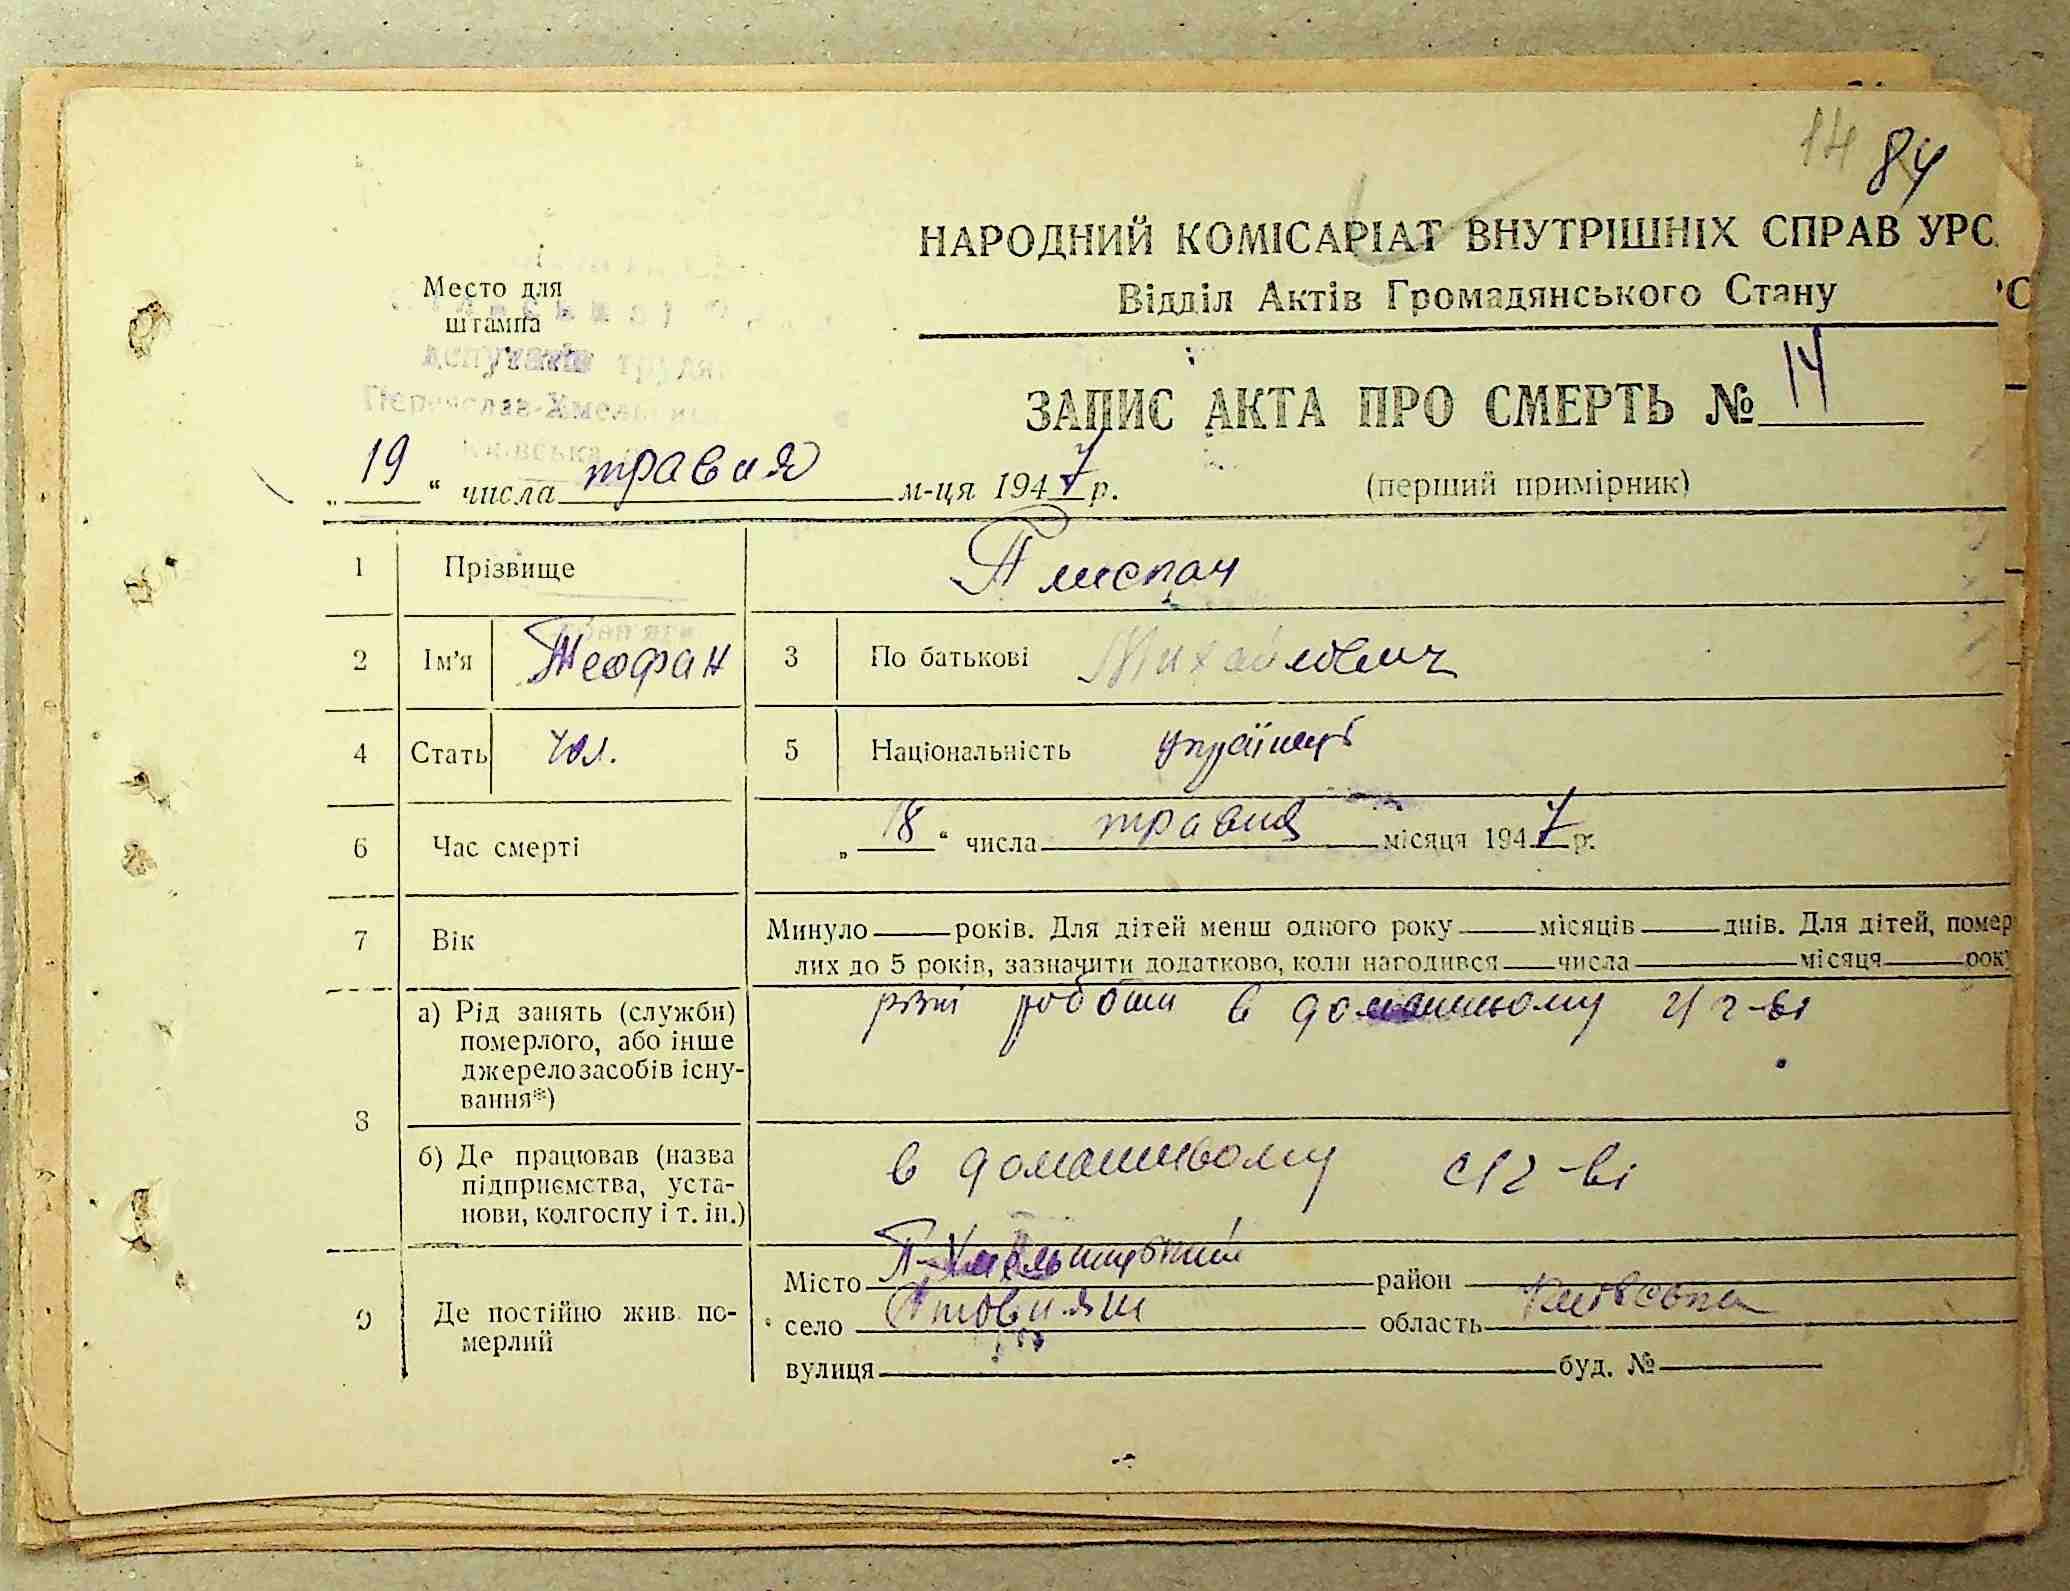 14 84
НАРОДНИЙ КОМІСАРІАТ ВНУТРІШНІХ СПРАВ УРС
Відділ Актів Громадянського Стану
Место для
штампа
депутатів трудя
Переяслав-Хмельниц
Київська
ЗАПИС АКТА ПРО СМЕРТЬ № 14
„19“ числа травня м-ця 1947 р. (перший примірник)
1 Прізвище
2 Ім'я Теофан 3 По батькові Михайлович
4 Стать чол. 5 Національність українець
6 Час смерті „18“ числа травня місяця 1947 р.
7 Вік Минуло років. Для дітей менш одного року місяців днів. Для дітей, помер
лих до 5 років, зазначити додатково, коли нагодився числа місяця рок
8 а) Рід занять (служби) різні роботи в домашньому г-ві
померлого, або інше
джерело засобів існу-
вання*)
б) Де працював (назва в домашньому с/г-ві
підприємства, уста-
нови, колгоспу і т. ін.)
9 Де постійно жив по-
мерлий
Місто П-Хмельницький район
село область Київська
вулиця буд. №